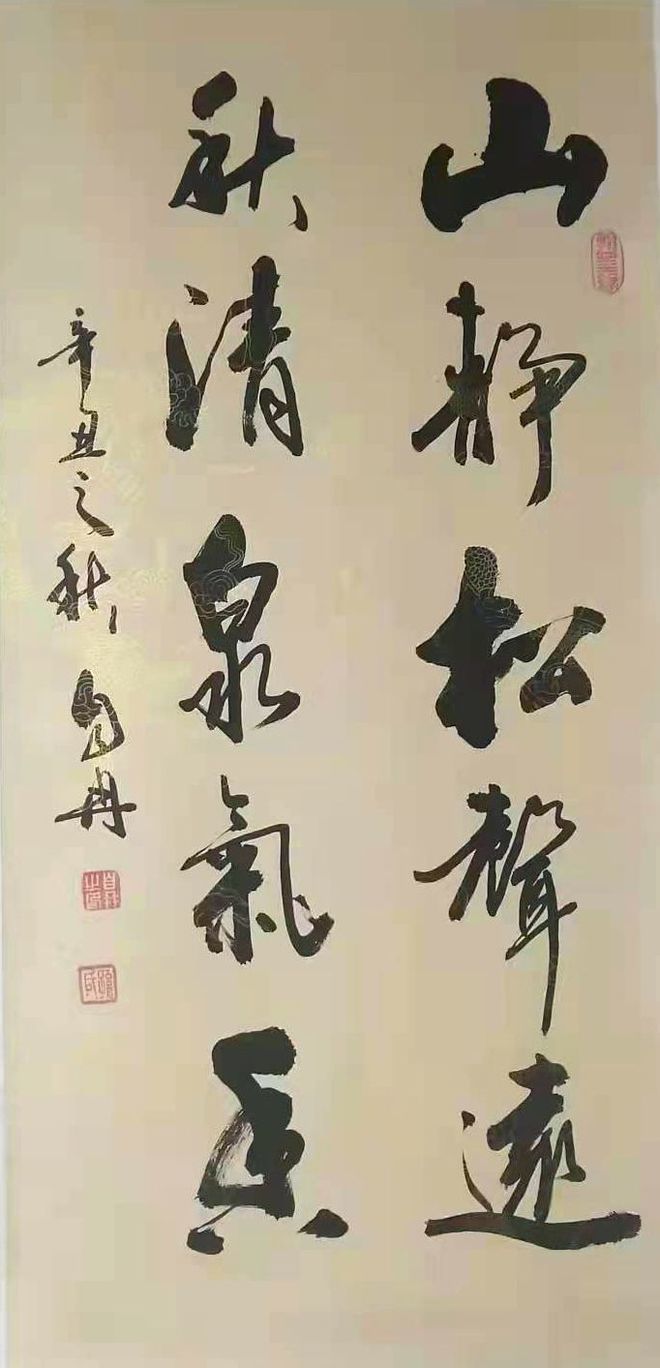 山靜松聲遠
秋清泉氣真
辛丑之秋自冉